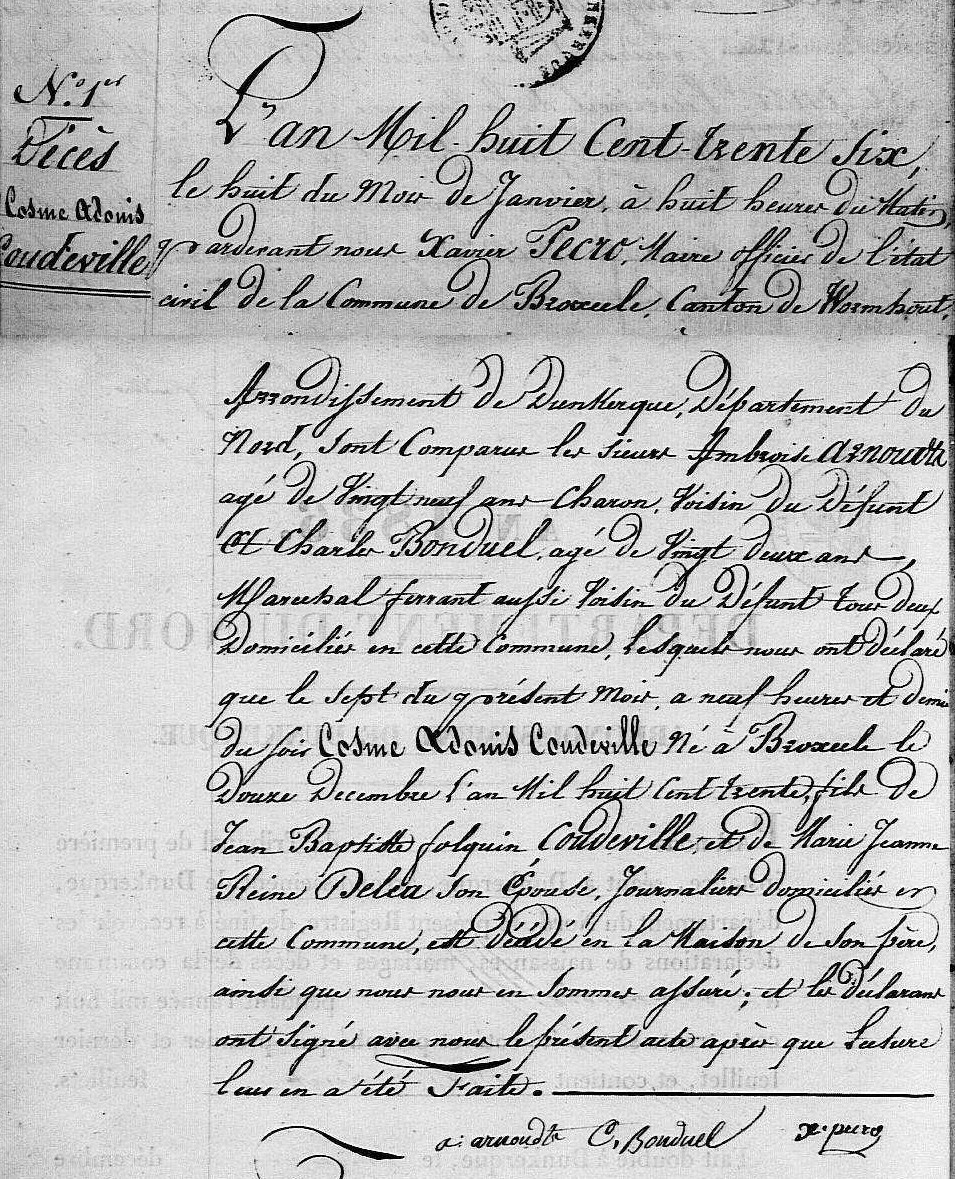 N.º 1.er
Décès
Cosme Adonis
Coudeville
L'an Mil huit Cent trente six,
le huit du Mois de Janvier, à huit heures du Matin,
pardevant nous Xavier Pecro, Maire officier de l'état
civil de la Commune de Broxeele, Canton de Wormhout,
Arrondissement de Dunkerque, Département du
Nord, sont Comparus les sieurs Ambroise Arnoudts
agé de Vingt neuf ans Charon, Voisin du Défunt
Et Charles Bonduel, agé de Vingt deux ans,
Marechal ferrant aussi Voisin du Défunt tous deux
Domiciliés en cette Commune, lesquels nous ont déclaré
que le sept du présent Mois, a neuf heures et demie
du soir Cosme Adonis Coudeville Né à Broxeele le
Douze Decembre l'an Mil huit Cent trente, fils de
Jean Baptiste folquin Coudeville, et de Marie Jeanne
Reine Delea son Épouse, Journaliers domiciliés en
cette Commune, est Décédé en la Maison de son père,
ainsi que nous nous en sommes assuré; et les déclarans
ont signé avec nous le présent acte après que Lecture
leur en a été Faite.
a: arnoudts C, Bonduel